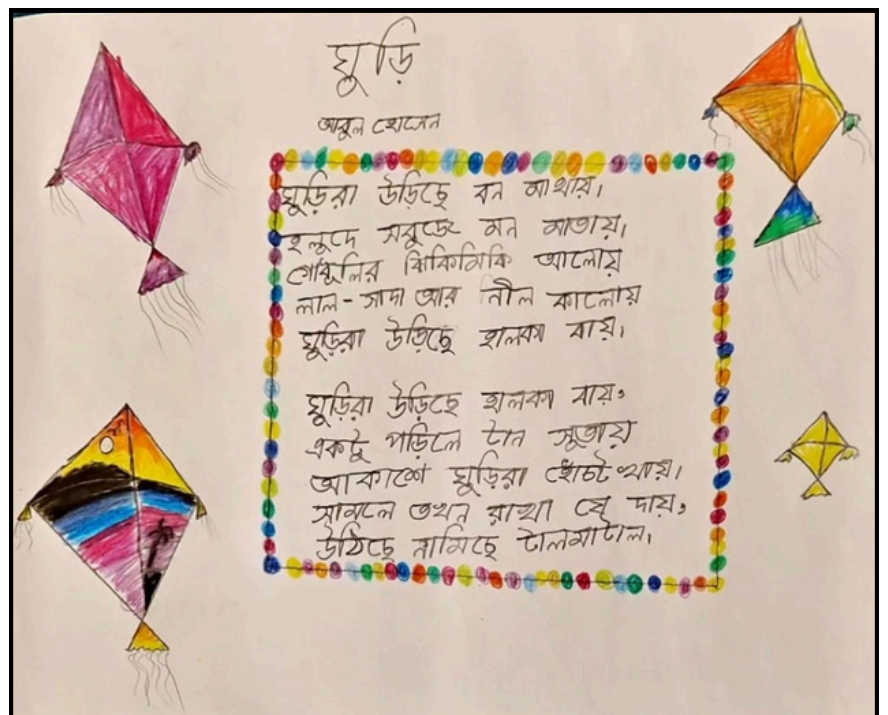 ঘুড়ি
আবুল হোসেন
ঘুড়িরা উড়িছে বন মাথায়।
হলুদে সবুজে মন মাতায়।
গোধুলির ঝিকিমিকি আলোয়
লাল-সাদা আর নীল কালোয়
ঘুড়িরা উড়িছে হালকা বায়।
ঘুড়িরা উড়িছে হালকা বায়,
একটু পড়িলে টান সুতায়
আকাশে ঘুড়িরা হোঁচট খায়।
সামলে তখন রাখা যে দায়,
উঠিছে নামিছে টালমাটাল।